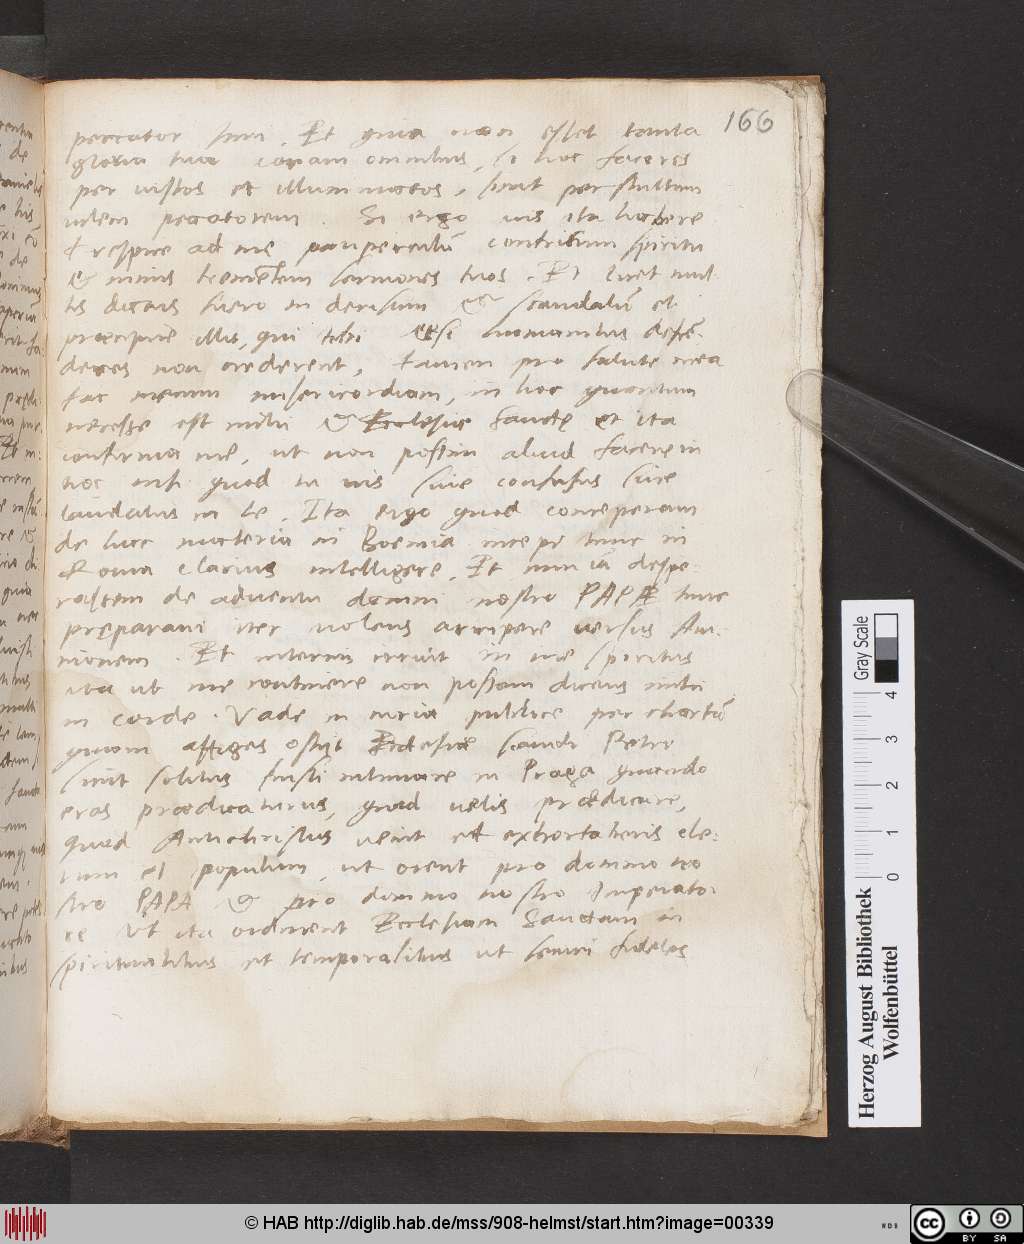 166
peccator sum. Et quia non esset tanta
gloria tua coram omnibus, si hoc faceres
per iustos et illuminatos, sicut per stultum
vilem peccatorem. Si ergo vis ita habere
respice ad me pauperculū contritum spiritu
& nimis trementem sermones tuos. Et licet mul
tis dicens fuero in derisum & scandalū et
praecipue illis, qui tibi humanitus defē-
deres non crederent, tamen pro salute mea
fac mecum misericordiam, in hoc quantum
necesse est mihi & Ecclesiae Sanctę et ita
confirma me, ut non possim aliud facere in
hoc nisi quod tu vis sive confusus sive
laudatus in te. Ita ergo quod conceperam
de hac materia in Boemia incepi tunc in
Roma clarius intelligere. Et cum iā despe-
rassem de adventu domini nostri PAPAE tunc
pręparavi iter volens arripere versus Avi-
nionem. Et interim irruit in me spiritus
ita ut me continere non possem dicens mihi
in corde. Vade in curia publice per chartā
quam affiges ostijt Ecclesiae Sancti Petri
sicut solitus fuisti intimare in Praga quando
eras praedicaturus, quod velis praedicare,
quod Antichristus venit et extortaberis cle-
rum et populum, ut orent pro domino no
stro PAPA & pro domino nostro Imperato
re Ut ita ordinent Ecclesiam Sanctam in
spiritualibus et temporalibus ut securi fideles
Gray Scale
4
3
2
1
0
Herzog August Bibliothek
Wolfenbüttel
© HAB http://diglib.hab.de/mss/908-helmst/start.htm?image=00339
WDB
cc
BY SA